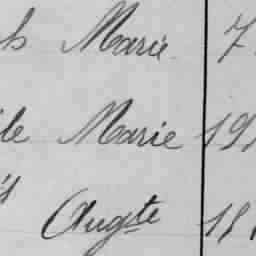 Marie 7
le Marie 191
Augte 181